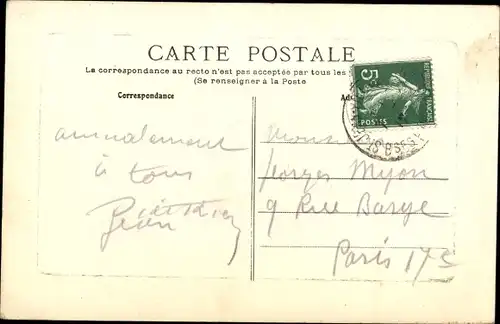 CARTE POSTALE
La correspondance au recto n'est pas acceptée par tous les
(Se renseigner à la Poste
Correspondance
Ad
5
REPUBLIQUE FRANÇAISE
POSTES
amicalement
à tous
Jean
Mons
Georges Myon
9 Rue Barye
Paris 17e